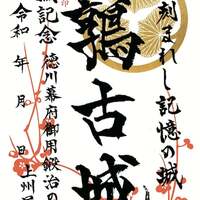 刻まれし記憶の城
鶉古城
記念 徳川幕府御用鍛治の
令和 年 月 日 上州